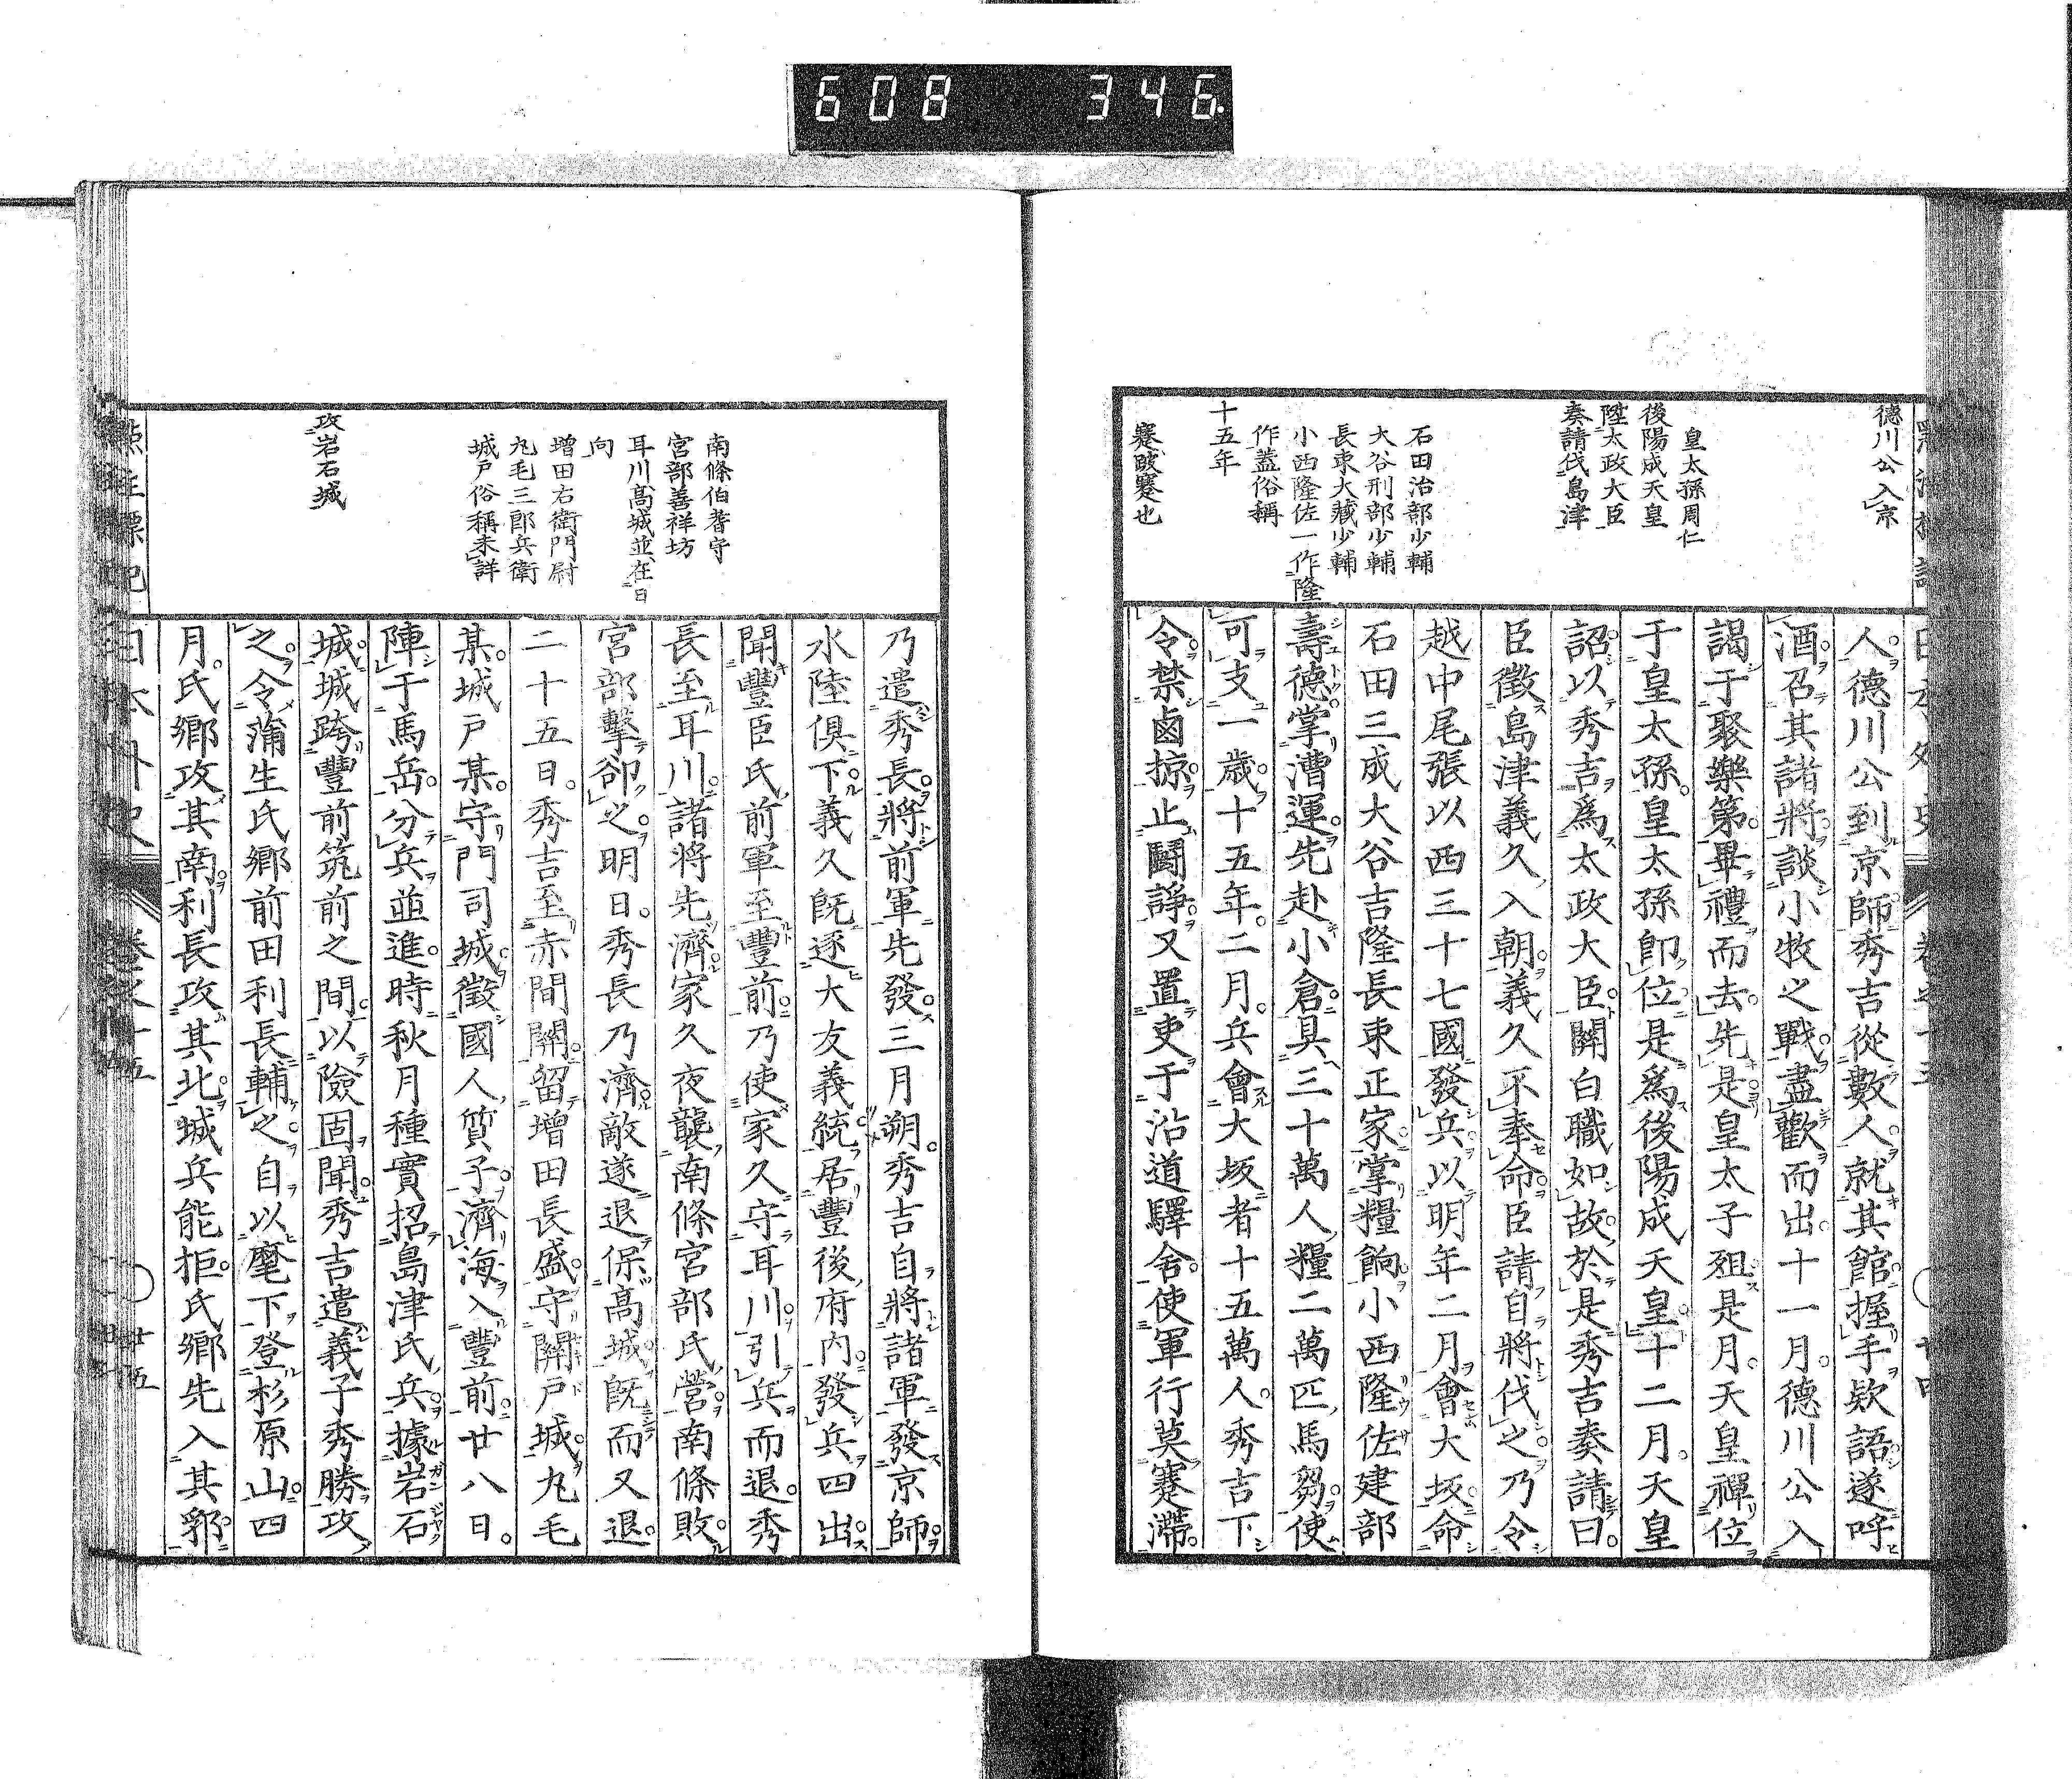 608 346
德川公入京
皇太孫周仁
後陽成天皇
陞太政大臣
奏請伐島津
石田治部少輔
大谷刑部少輔
長束大藏少輔
小西隆佐一作隆
作蓋俗稱
十五年
蹇跛蹇也
人德川公到京師秀吉從數人就其館握手款語遂呼
酒召其諸將談小牧之戰盡歡而出十一月德川公入
謁于聚樂第畢禮而去先是皇太子殂是月天皇禪位
于皇太孫皇太孫卽位是爲後陽成天皇十二月天皇
詔以秀吉爲太政大臣關白職如故於是秀吉奏請曰
臣徵島津義久入朝義久不奉命臣請自將伐之乃令
越中尾張以西三十七國發兵以明年二月會大坂命
石田三成大谷吉隆長束正家掌糧餉小西隆佐建部
壽德掌漕運先赴小倉具三十萬人糧二萬匹馬芻使
可支一歲十五年二月兵會大坂者十五萬人秀吉下
令禁鹵掠止鬭諍又置吏于沿道驛舍使軍行莫蹇滯
南條伯耆守
宮部善祥坊
耳川高城並在日
向
增田右衛門尉
九毛三郎兵衛
城戸俗稱未詳
攻岩石城
乃遣秀長將前軍先發三月朔秀吉自將諸軍發京師
水陸俱下義久旣逐大友義統居豐後府内發兵四出
聞豐臣氏前軍至豐前乃使家久守耳川引兵而退秀
長至耳川諸將先濟家久夜襲南條宮部氏營南條敗
宮部擊卻之明日秀長乃濟敵遂退保高城旣而又退
二十五日秀吉至赤間關留增田長盛守關戸城九毛
某城戸某守門司城徵國人質子濟海入豐前廿八日
陣于馬岳分兵並進時秋月種實招島津氏兵據岩石
城城跨豐前筑前之間以險固聞秀吉遣義子秀勝攻
之令蒲生氏鄕前田利長輔之自以麾下登杉原山四
月氏鄕攻其南利長攻其北城兵能拒氏鄕先入其郛
日本外史 卷之十五 廿五